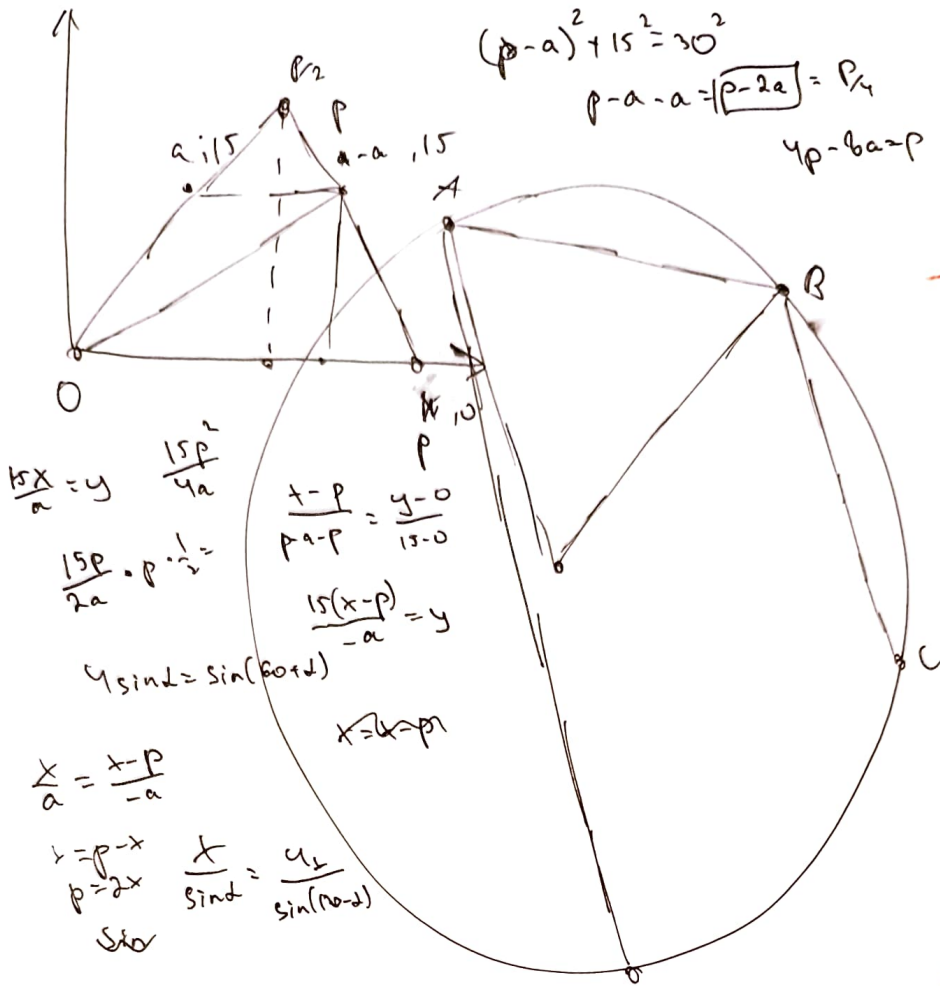 (p-a)² + 15² = 30²
p-a-a = p-2a = P/4
4p-8a=p
P/2
p
a;15
a-a ,15
A
B
O
,0
p
15x/a = y
15p²/4a
15p/2a · p · 1/2 =
(x-p)/(p-a-p) = (y-0)/(15-0)
15(x-p)/-a = y
4sinα = sin(60+α)
C
x/a = (x-p)/-a
x=p-x
p=2x
x/sinα = 4x/sin(120-α)